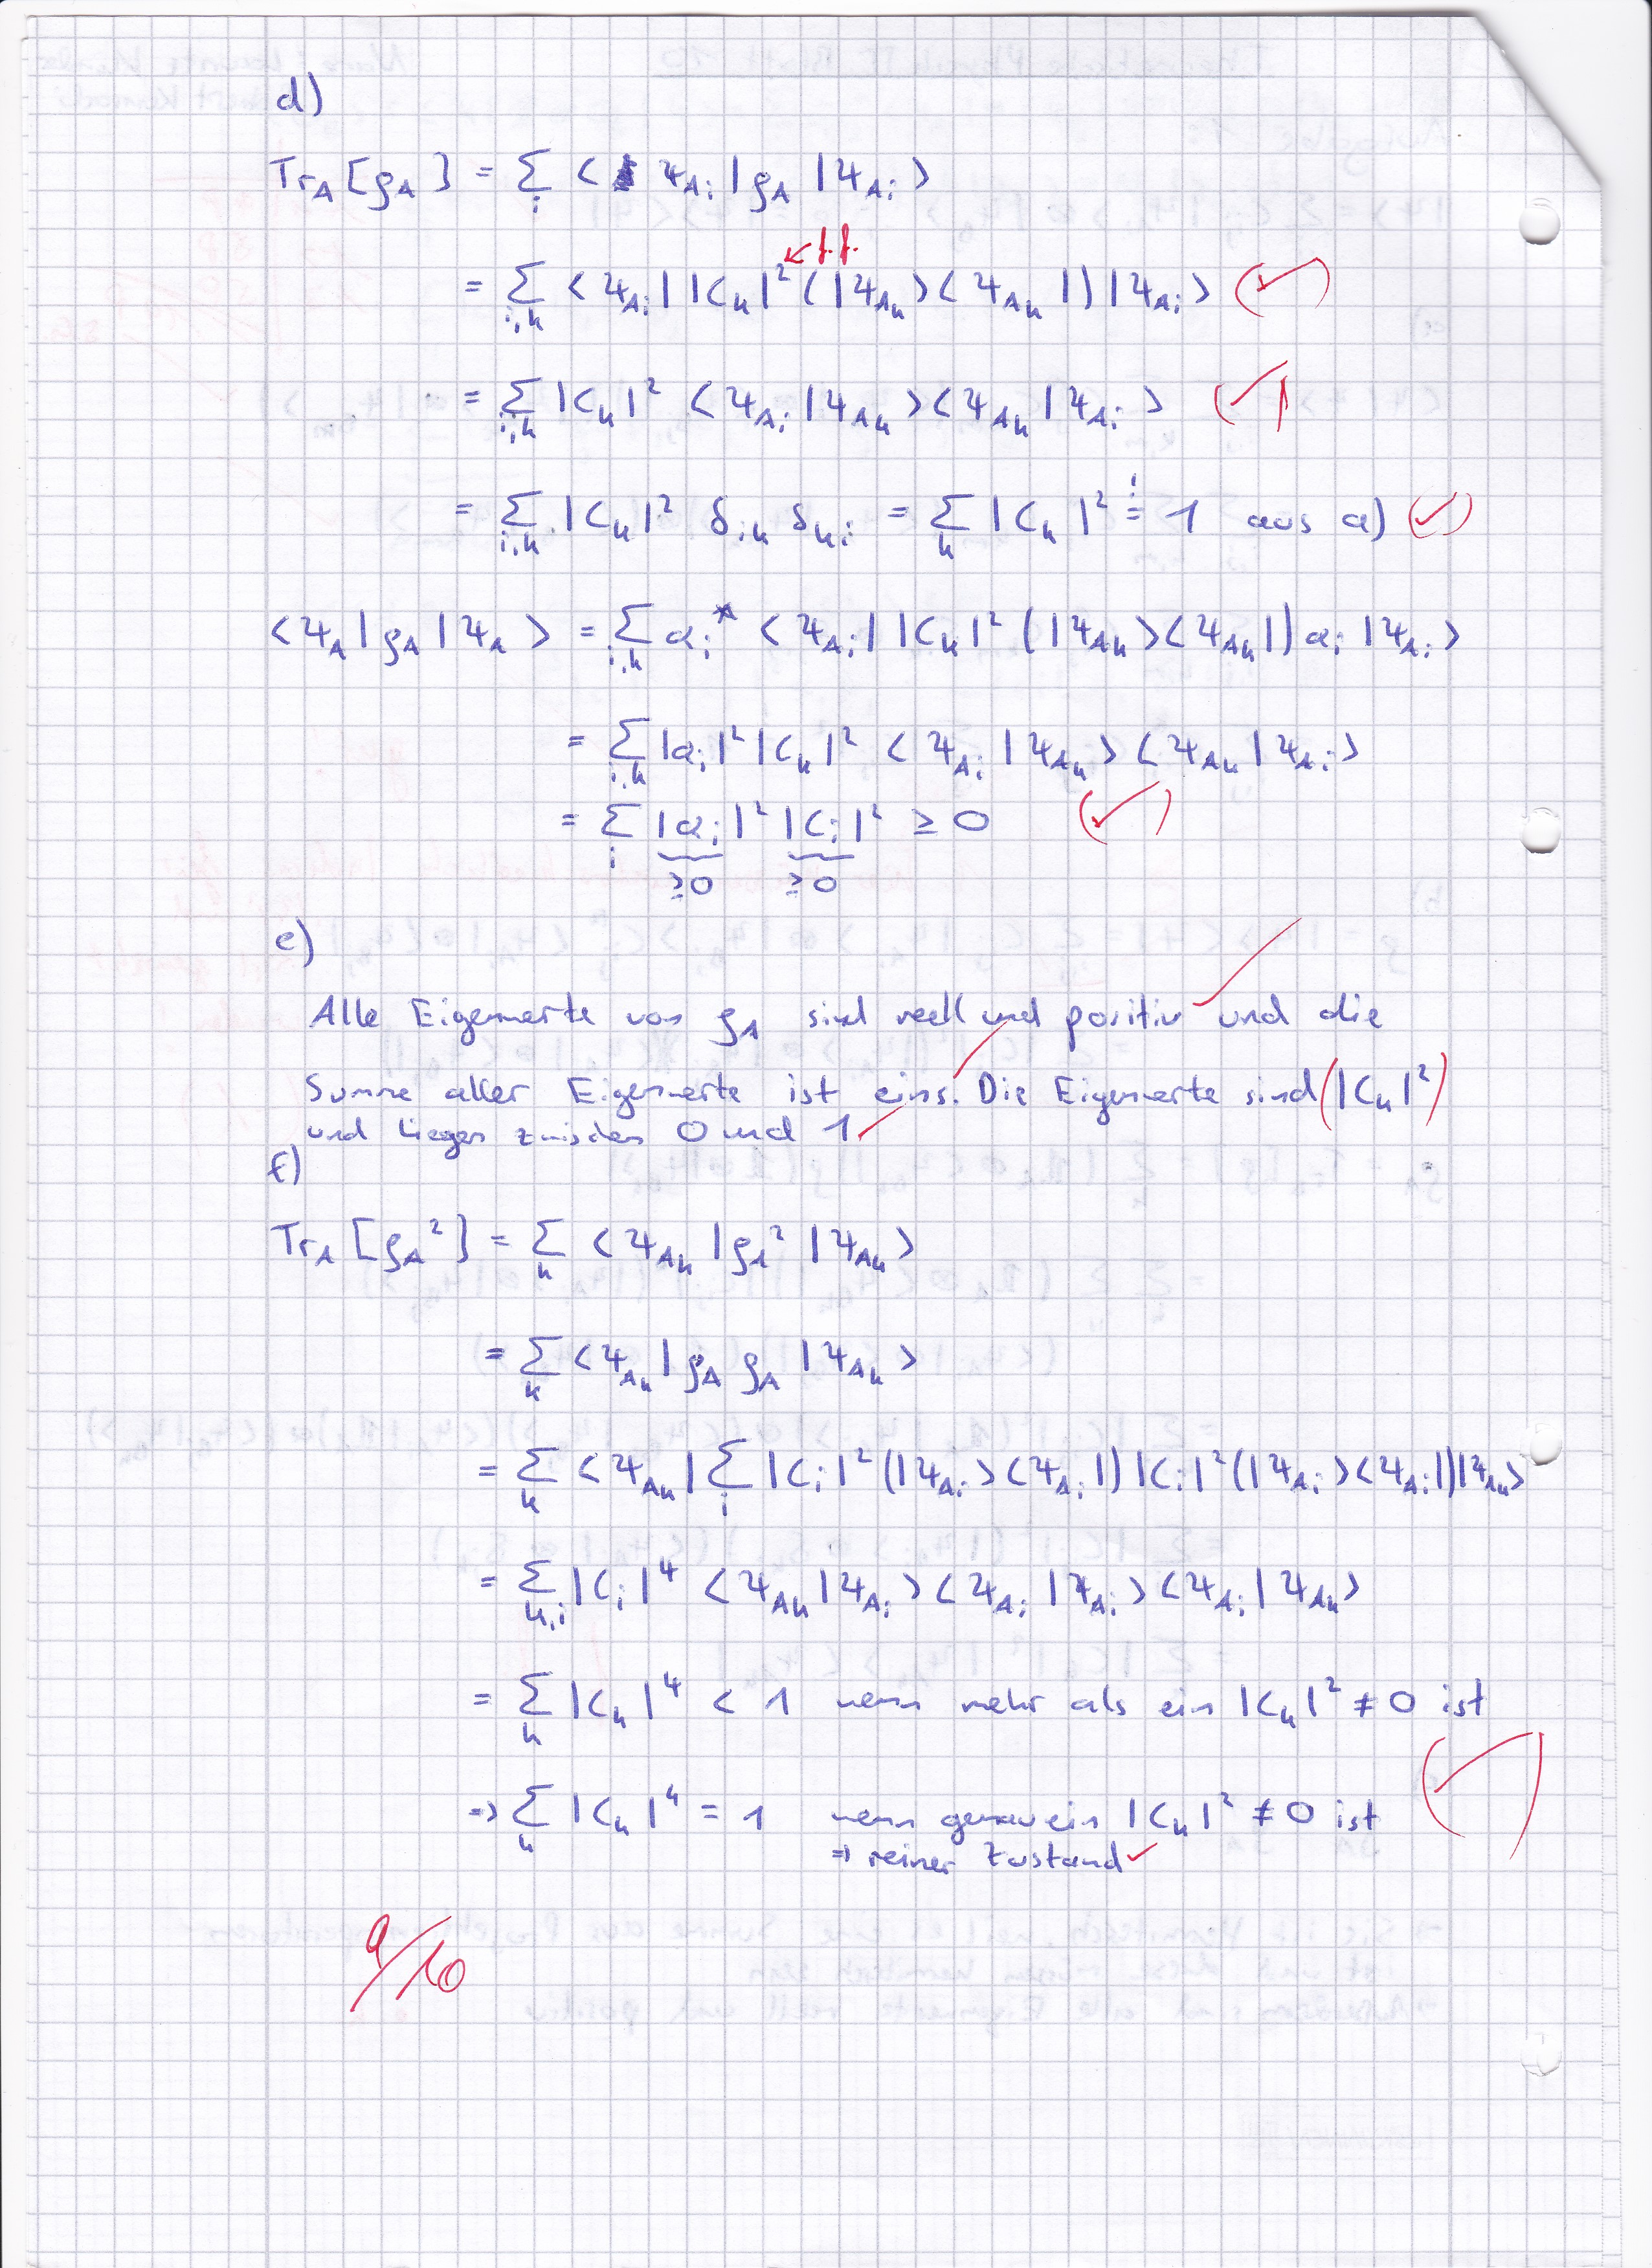 d)
Tr_A [ρ_A] = Σ_i ⟨ψ_{A_i} | ρ_A | ψ_{A_i}⟩
← f.f.
= Σ_{i,k} ⟨ψ_{A_i}| |C_k|² (|ψ_{A_k}⟩⟨ψ_{A_k}|) |ψ_{A_i}⟩ (✓)
= Σ_{i,k} |C_k|² ⟨ψ_{A_i}|ψ_{A_k}⟩⟨ψ_{A_k}|ψ_{A_i}⟩ (✓)
= Σ_{i,k} |C_k|² δ_{ik} δ_{ki} = Σ_k |C_k|² =! 1 aus a) (✓)
⟨ψ_A|ρ_A|ψ_A⟩ = Σ_{i,k} a_i* ⟨ψ_{A_i}| |C_k|² (|ψ_{A_k}⟩⟨ψ_{A_k}|) a_i |ψ_{A_i}⟩
= Σ_{i,k} |a_i|² |C_k|² ⟨ψ_{A_i}|ψ_{A_k}⟩ ⟨ψ_{A_k}|ψ_{A_i}⟩
= Σ_i |a_i|² |C_i|² ≥ 0 (✓)
≥0 ≥0
e)
Alle Eigenwerte von ρ_A sind reell und positiv ✓ und die
Summe aller Eigenwerte ist eins. ✓ Die Eigenwerte sind (|C_k|²)
und liegen zwischen 0 und 1 ✓
f)
Tr_A [ρ_A²] = Σ_k ⟨ψ_{A_k} | ρ_A² | ψ_{A_k}⟩
= Σ_k ⟨ψ_{A_k} | ρ_A ρ_A | ψ_{A_k}⟩
= Σ_k ⟨ψ_{A_k}| Σ_i |C_i|² (|ψ_{A_i}⟩⟨ψ_{A_i}|) |C_i|² (|ψ_{A_i}⟩⟨ψ_{A_i}|) |ψ_{A_k}⟩
= Σ_{k,i} |C_i|⁴ ⟨ψ_{A_k}|ψ_{A_i}⟩ ⟨ψ_{A_i}|ψ_{A_i}⟩ ⟨ψ_{A_i}|ψ_{A_k}⟩
= Σ_k |C_k|⁴ < 1 wenn mehr als ein |C_k|² ≠ 0 ist
⇒ Σ_k |C_k|⁴ = 1 wenn genau ein |C_k|² ≠ 0 ist (✓)
⇒ reiner Zustand ✓
9/10